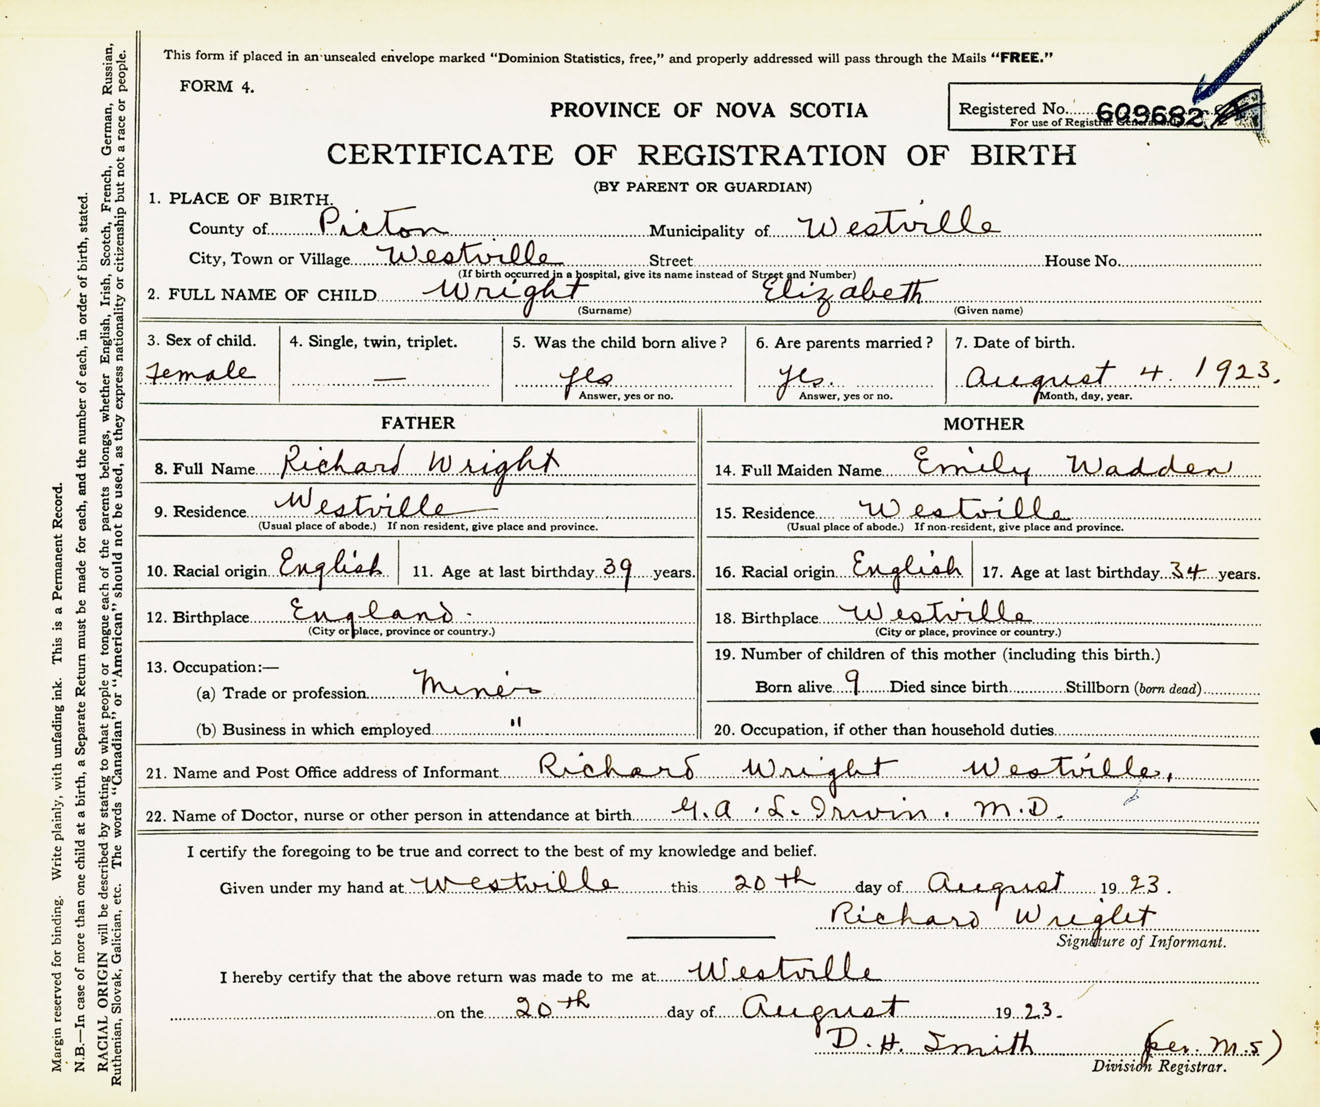 This form if placed in an unsealed envelope marked "Dominion Statistics, free," and properly addressed will pass through the Mails "FREE."
FORM 4.
PROVINCE OF NOVA SCOTIA
Registered No. 609682
For use of Registrar General only.
CERTIFICATE OF REGISTRATION OF BIRTH
(BY PARENT OR GUARDIAN)
1. PLACE OF BIRTH.
County of Picton Municipality of Westville
City, Town or Village Westville Street House No.
(If birth occurred in a hospital, give its name instead of Street and Number)
2. FULL NAME OF CHILD Wright Elizabeth
(Surname) (Given name)
3. Sex of child. 4. Single, twin, triplet. 5. Was the child born alive? 6. Are parents married? 7. Date of birth.
Female — yes yes. August 4. 1923.
Answer, yes or no. Answer, yes or no. Month, day, year.
FATHER MOTHER
8. Full Name Richard Wright 14. Full Maiden Name Emily Wadden
9. Residence Westville 15. Residence Westville
(Usual place of abode.) If non-resident, give place and province. (Usual place of abode.) If non-resident, give place and province.
10. Racial origin English 11. Age at last birthday 39 years. 16. Racial origin English 17. Age at last birthday 34 years.
12. Birthplace England. 18. Birthplace Westville
(City or place, province or country.) (City or place, province or country.)
13. Occupation:— 19. Number of children of this mother (including this birth.)
(a) Trade or profession Miner Born alive 9 Died since birth Stillborn (born dead)
(b) Business in which employed " 20. Occupation, if other than household duties
21. Name and Post Office address of Informant Richard Wright Westville,
22. Name of Doctor, nurse or other person in attendance at birth G. A. L. Irwin. M.D.
I certify the foregoing to be true and correct to the best of my knowledge and belief.
Given under my hand at Westville this 20th day of August 1923.
Richard Wright
Signature of Informant.
I hereby certify that the above return was made to me at Westville
on the 20th day of August 1923.
D. H. Smith (per. M.S)
Division Registrar.
Margin reserved for binding. Write plainly, with unfading ink. This is a Permanent Record.
N.B.—In case of more than one child at a birth, a Separate Return must be made for each, and the number of each, in order of birth, stated.
RACIAL ORIGIN will be described by stating to what people or tongue each of the parents belongs, whether English, Irish, Scotch, French, German, Russian,
Ruthenian, Slovak, Galician, etc. The words "Canadian" or "American" should not be used, as they express nationality or citizenship but not a race or people.